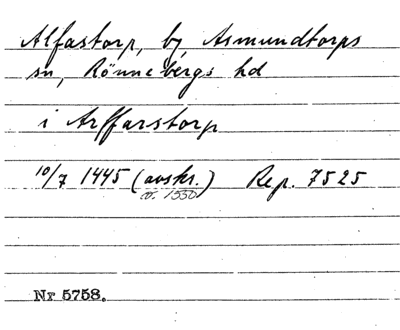 Alfastorp, by, Asmundtorps
sn, Rönnebergs hd
i Arffarstorp
10/7 1445 (avskr.) Rep. 7525
c. 1550
Nr 5758.